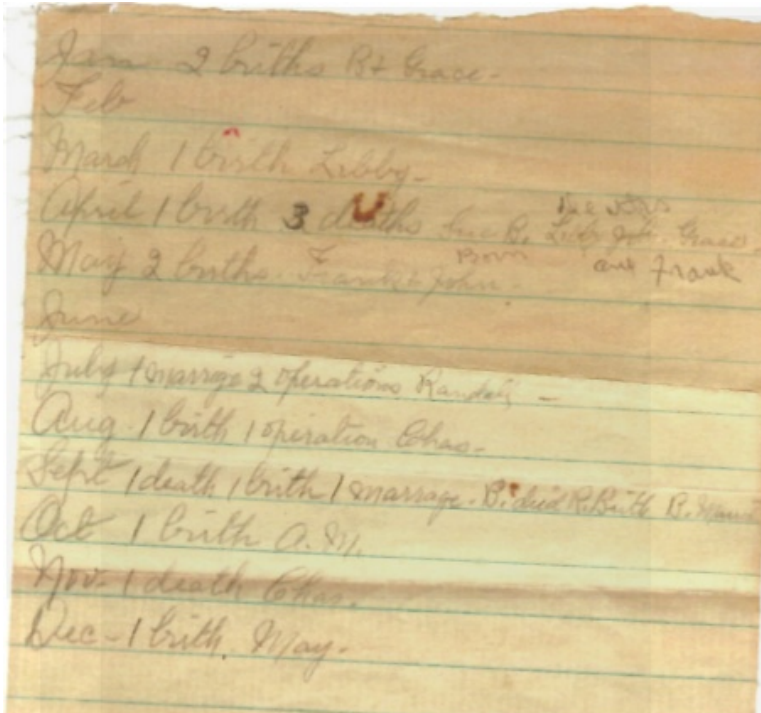 Jan 2 briths B & Grace -
Feb
March 1 birth Libby -
April 1 birth 3 deaths B. Libby Grace
and Frank
Born
May 2 births. Frank & John.
June
July 1 marrige 2 operations Randall -
Aug. 1 birth 1 operation Chas -
Sept 1 death 1 brith 1 marrage. B. died R. Brith B.
Oct 1 brith A. M.
Nov - 1 death Chas.
Dec - 1 brith. May -